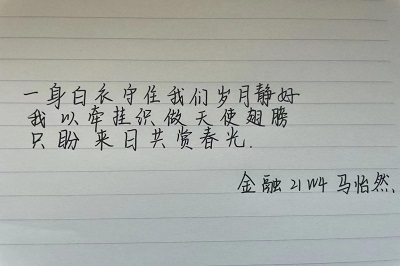 一身白衣守住我们岁月静好
我以牵挂织做天使翅膀
只盼来日共赏春光.
金融21W4马怡然、